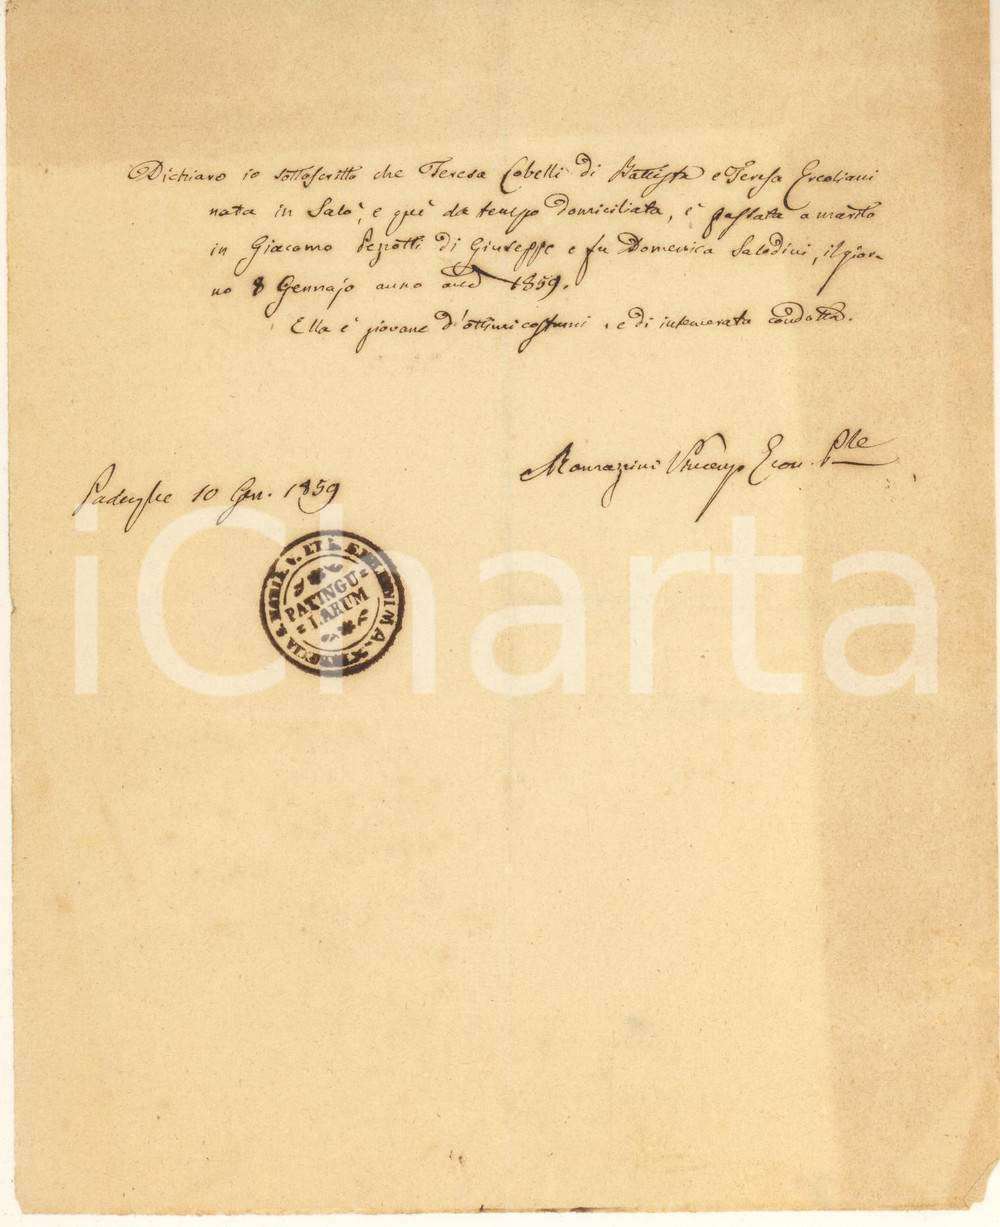 Dichiaro io sottoscritto che Teresa Cobelli di Battista e Teresa Ercoliani
nata in Salò, e quì da tempo domiciliata, è passata a marito
in Giacomo Pezzotti di Giuseppe e fu Domenica Salodini, il gior-
no 8 Gennajo anno 1859.
Ella è giovane d'ottimi costumi, e di intemerata condotta.
Vincenzo Econ. Ple
Padenghe 10 Gen. 1859
PATINGU=
=LARUM
iCharta